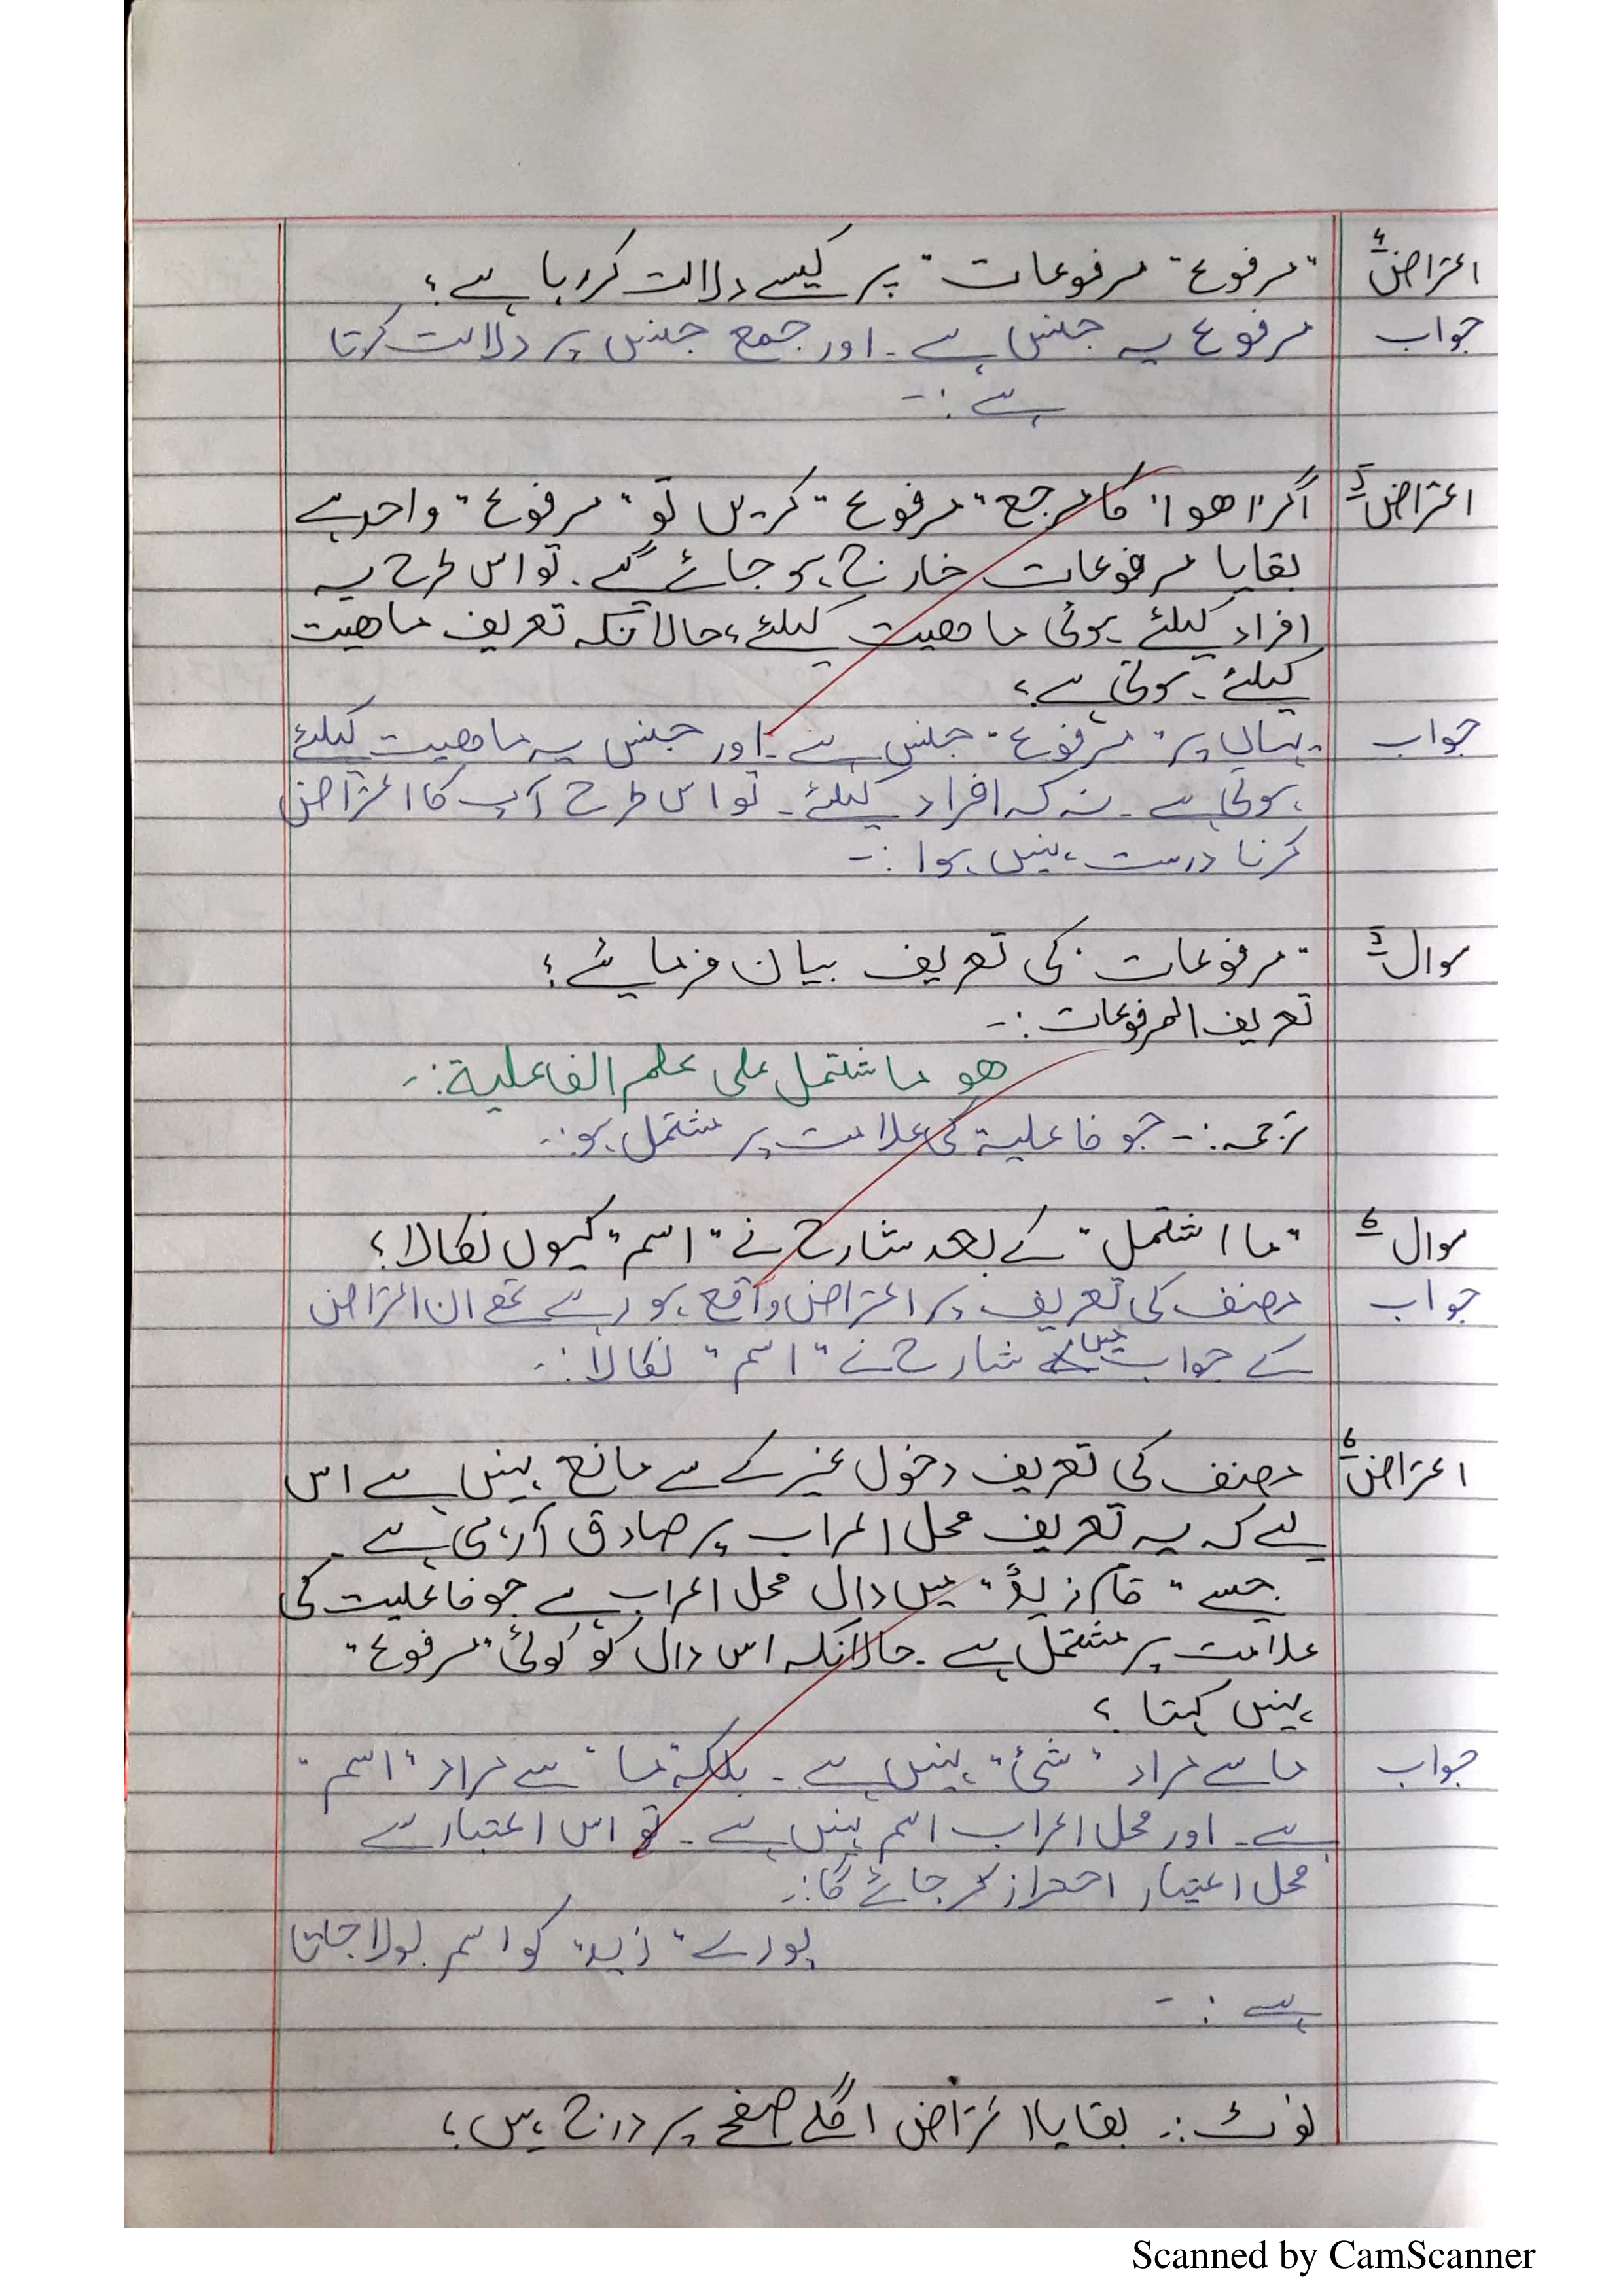 اعتراض ۴ "مرفوع" مرفوعات" پر کیسے دلالت کر رہا ہے؟
جواب مرفوع یہ جنس ہے۔ اور جمع جنس پر دلالت کرتا
ہے :-
اعتراض ۵ اگر "ھو" کا مرجع "مرفوع" کریں تو "مرفوع" واحد ہے
بقایا مرفوعات خارج ہو جائے گے۔ تو اس طرح یہ
افراد کیلئے ہوئی ماھیت کیلئے، حالانکہ تعریف ماھیت
کیلئے ہوتی ہے؟
جواب یہاں پر "مرفوع" جنس ہے۔ اور جنس یہ ماھیت کیلئے
ہوتی ہے۔ نہ کہ افراد کیلئے۔ تو اس طرح آپ کا اعتراض
کرنا درست نہیں ہوا :-
سوال ۵ "مرفوعات" کی تعریف بیان فرمائیے؟
تعریف المرفوعات :-
ھو ما شتمل علی علم الفاعلیة :-
ترجمہ :- جو فاعلیة کی علامت پر مشتمل ہو :-
سوال ۶ "ما اشتمل" کے بعد شارح نے "اسم" کیوں نکالا؟
جواب مصنف کی تعریف پر اعتراض واقع ہو رہے تھے ان اعتراض
کے جواب میں شارح نے "اسم" نکالا :-
اعتراض ۶ مصنف کی تعریف دخول غیر کے سے مانع نہیں ہے اس
لیے کہ یہ تعریف محل اعراب پر صادق آرہی ہے۔
جیسے "قام زیدٌ" میں دال محل اعراب ہے جو فاعلیت کی
علامت پر مشتمل ہے۔ حالانکہ اس دال کو کوئی "مرفوع"
نہیں کہتا؟
جواب ما سے مراد "شئ" نہیں ہے۔ بلکہ "ما" سے مراد "اسم"
ہے۔ اور محل اعراب اسم نہیں ہے۔ تو اس اعتبار سے
محل اعتبار احتراز کر جائے گا :-
پورے "زید" کو اسم بولا جاتا
ہے :-
نوٹ :- بقایا اعتراض اگلے صفحے پر درج ہیں؛
Scanned by CamScanner